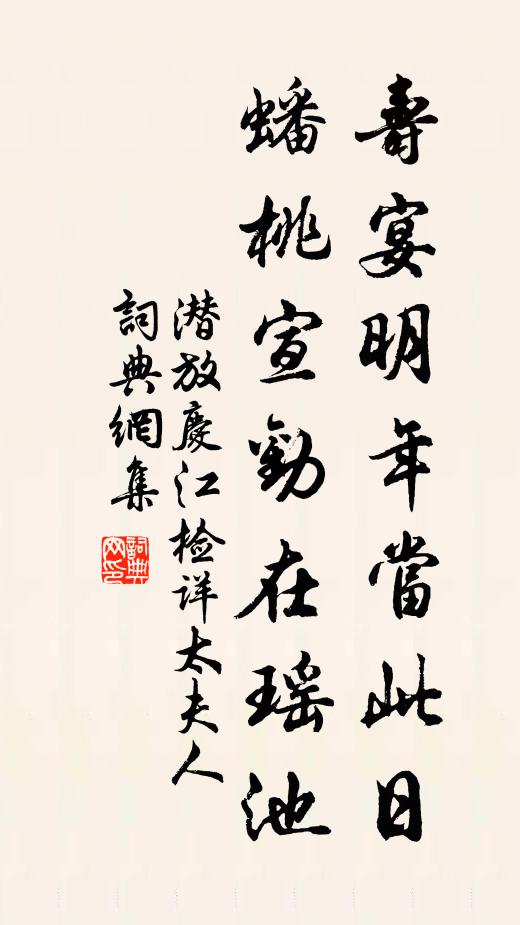 壽宴明年當此日
蟠桃宣勸在瑶池
潜放慶江检详太夫人
詞典網集
詞典網印